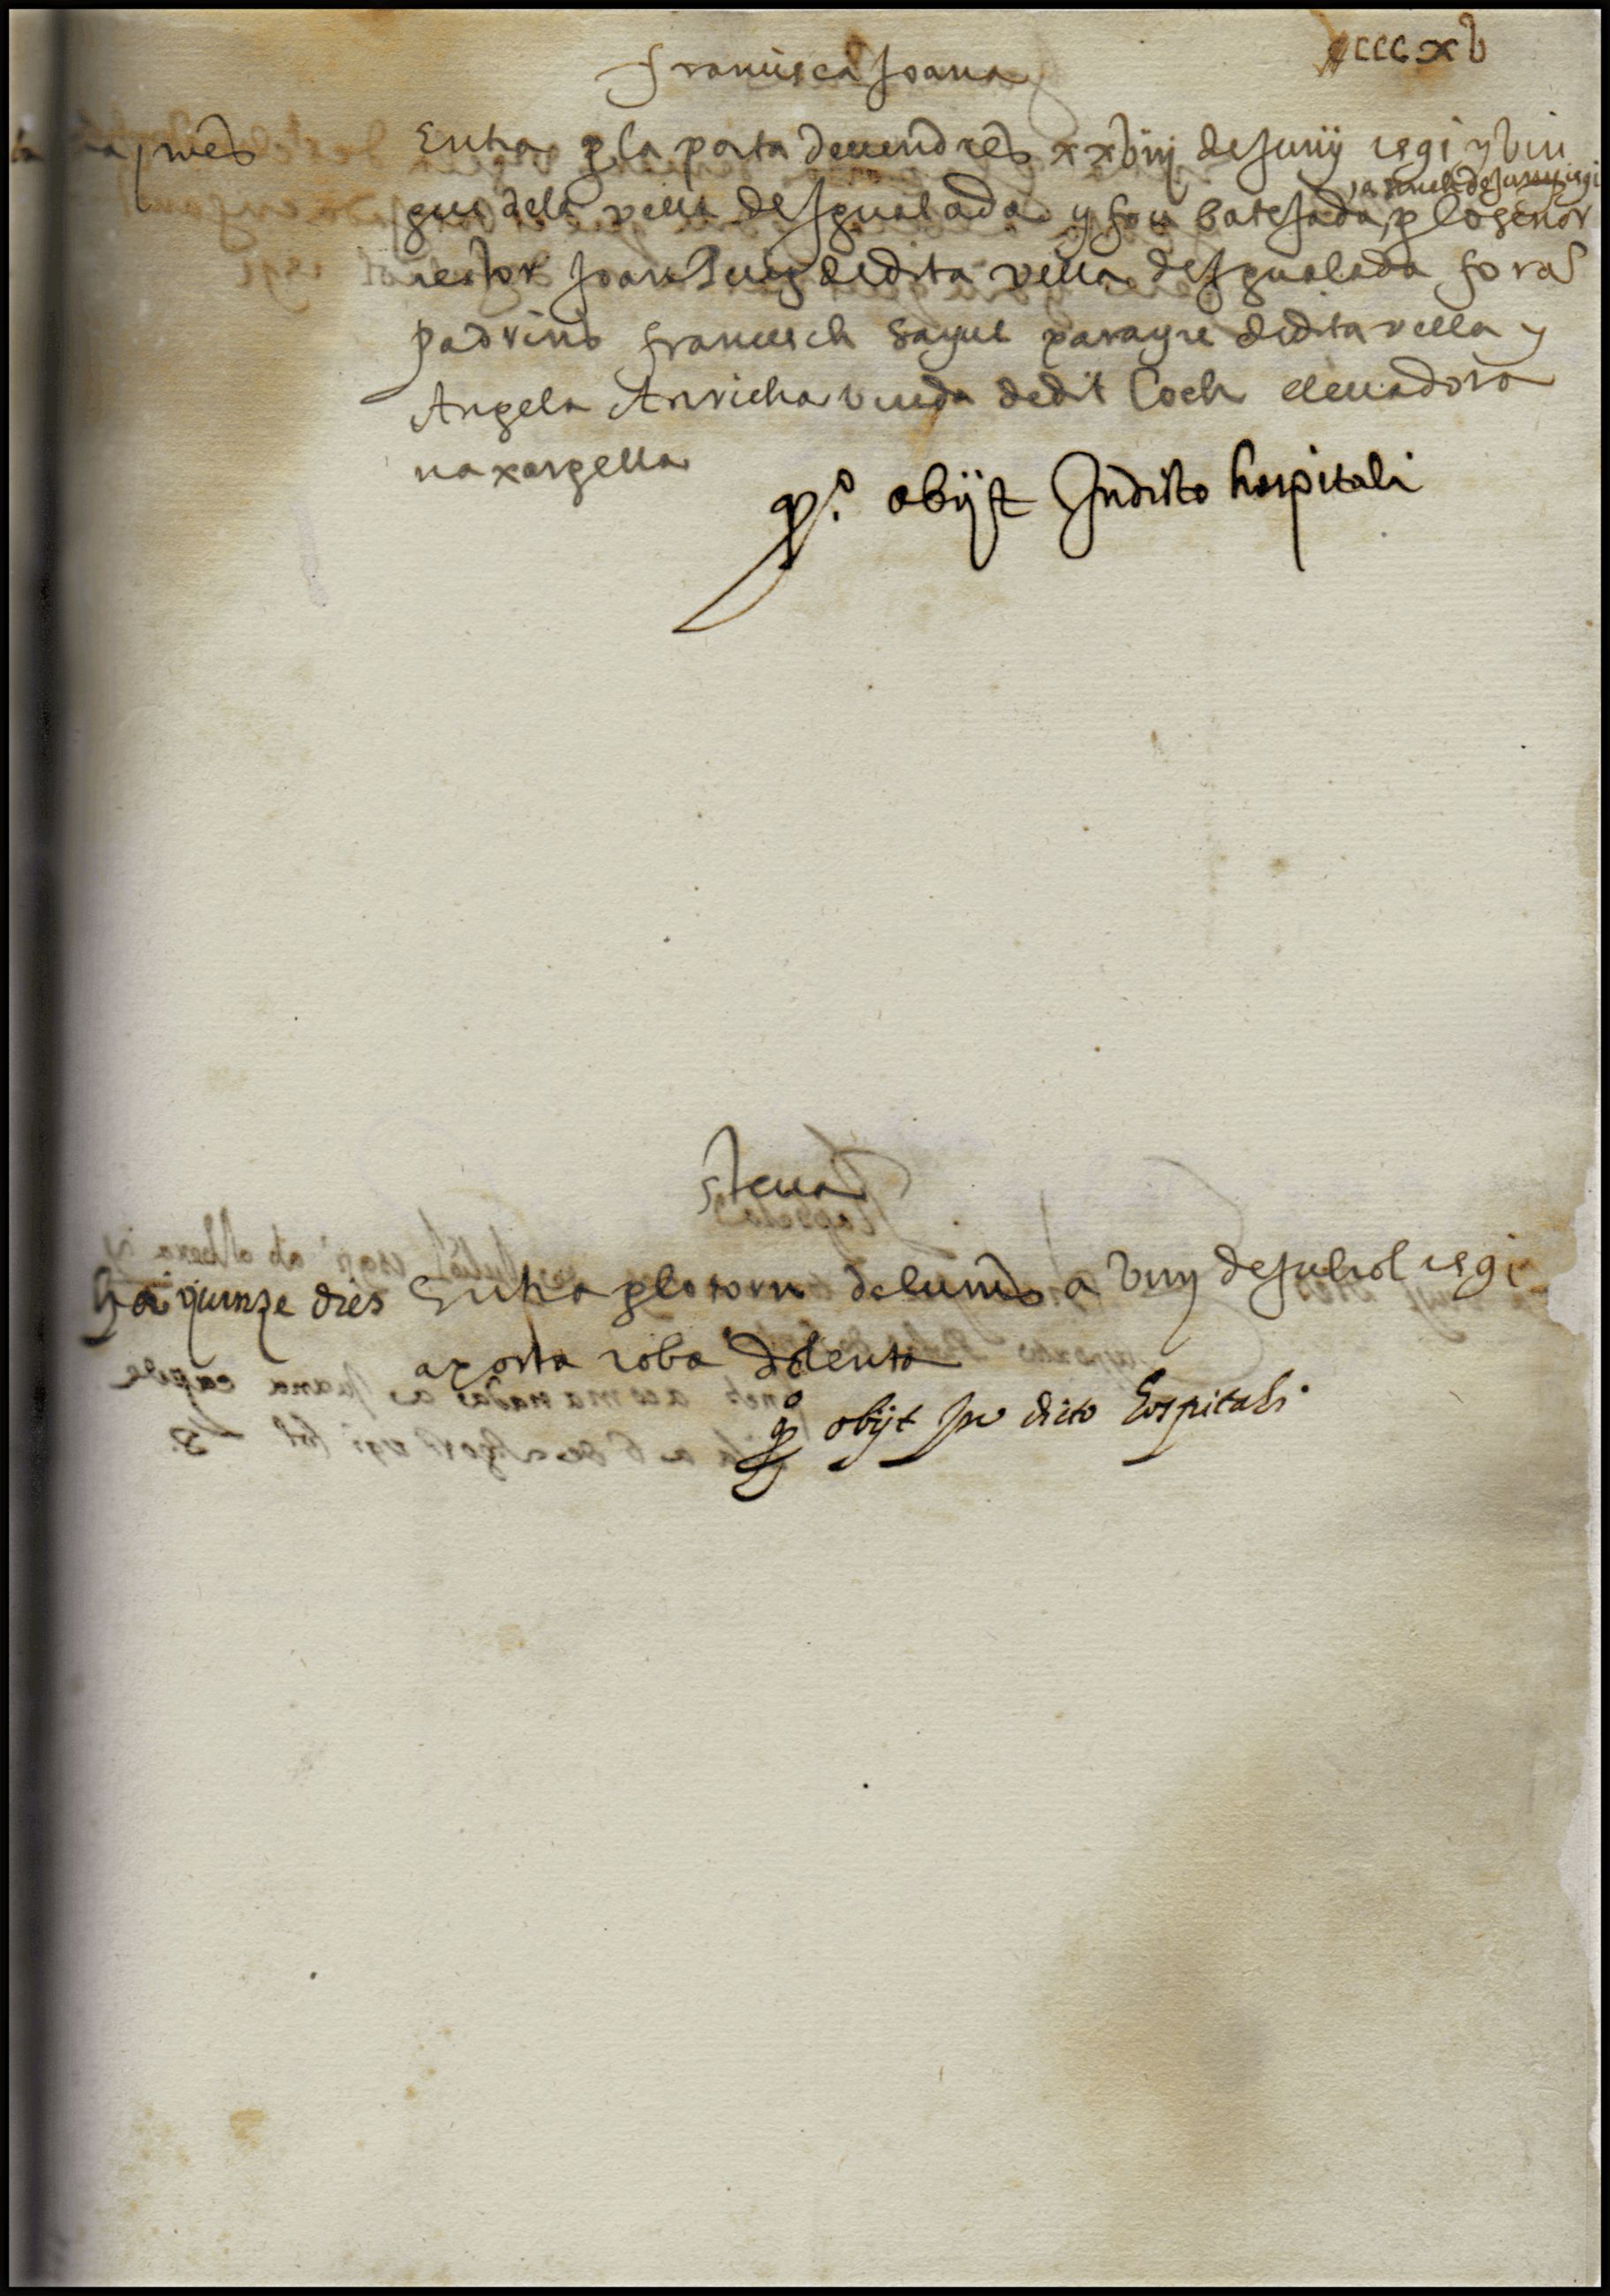 ccccxb
Francisca Joana
mes
Entra p la porta devendres xxbiij de Juny 1591 y vin
gue dela vella de Jgualada y fou batejada p lo senor
a de Juny 1591
rector Joan Puig dedita vella de Jgualada foras
padrins Francesch parayre dedita vella y
Angela Anricha viuda dedit loch elevadora
na xargella
qº. obijt Jndicto hospitali
steva
ha quinze dies Entra p lo torn deluns a viij de Juliol 1591
aporta roba dolenta
qº obijt in dicto hospitali